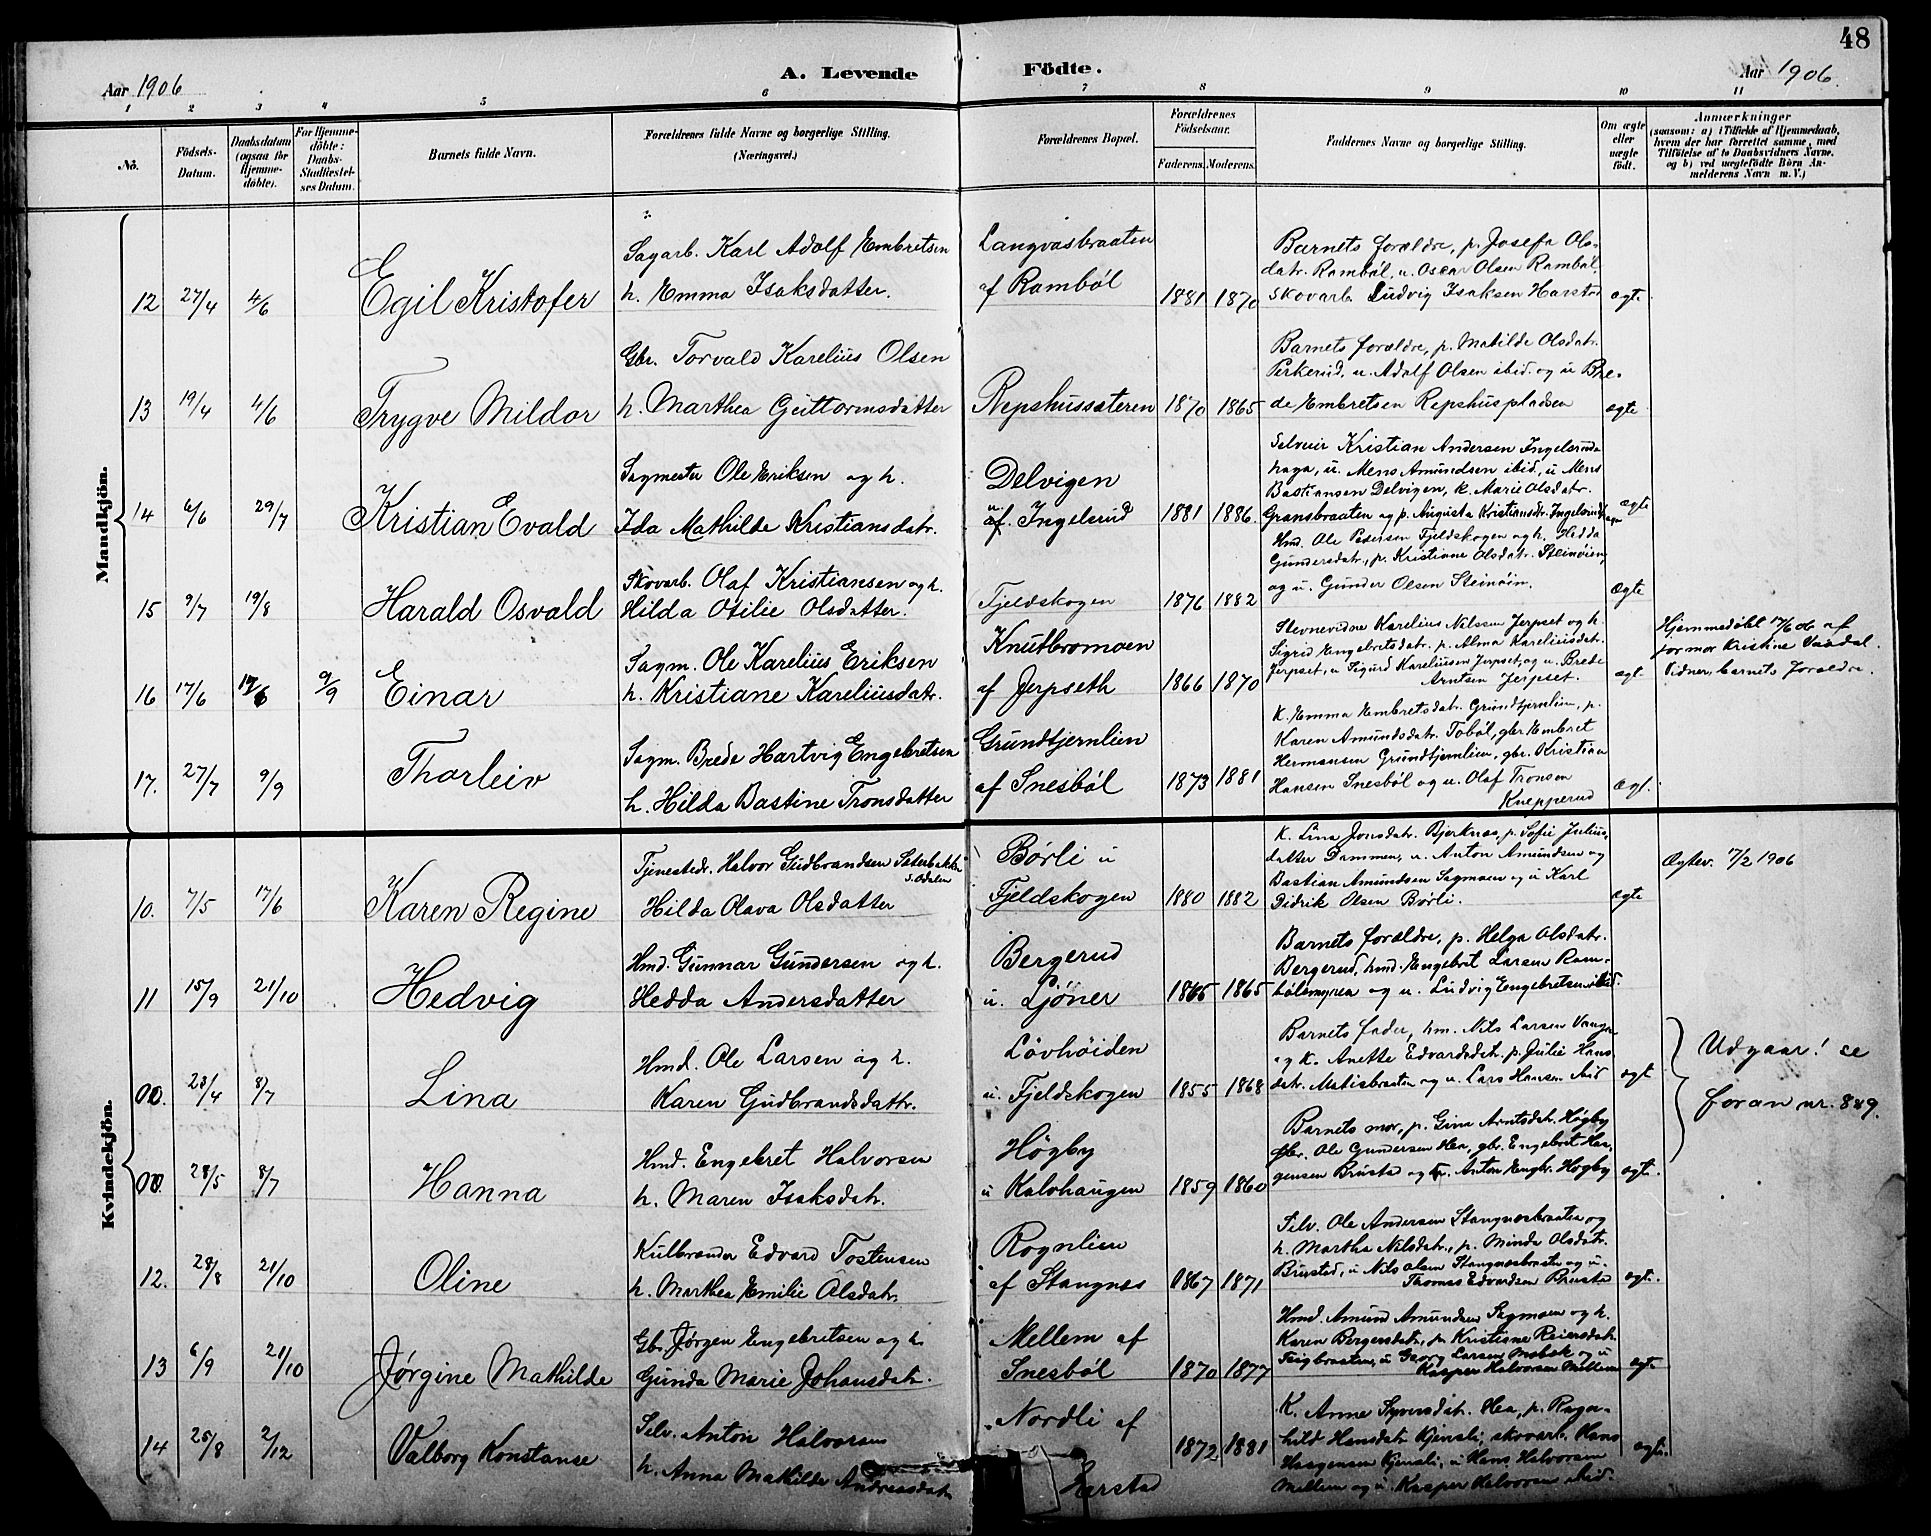 48
Aar 1906
A. Levende
Födte.
Aar 1906.
1 2 3 4 5 6 7 8 9 10 11
No.
Födsels-Datum.
Daabsdatum (ogsaa for Hjemme-döbte).
For Hjemme-döbte: Daabs-Stadfæstel-ses Datum.
Barnets fulde Navn.
Forældrenes fulde Navne og borgerlige Stilling.
(Næringsvei.)
Forældrenes Bopæl.
Forældrenes Födselsaar.
Faderens. Moderens.
Faddernes Navne og borgerlige Stilling.
Om ægte eller uægte födt.
Anmærkninger
(saasom: a) i Tilfælde af Hjemmedaab,
hvem der har forrettet samme, med
Tilföielse af to Daabsvidners Navne,
og b) ved uægtefödte Börn An-
melderens Navn m. V.)
Mandkjön.
12 27/4 4/6 Egil Kristofer
Sagarb. Karl Adolf Embretsen
h. Emma Isaksdatter.
Langvasbraaten
af Rambøl
1881 1870
Barnets forældre, p. Josefa Ols-
datr. Rambøl, u. Oscar Olsen Rambøl
Skovarb. Ludvig Isaksen Harstad
ægte
13 19/4 4/6 Trygve Mildor
Gbr. Torvald Karelius Olsen
h. Marthea Guttormsdatter
Repshussæteren
1870 1865
Barnets forældre, p. Matilde Olsdatr.
Perkerud, u. Adolf Olsen ibid. og u Bre-
de Embretsen Repshuspladsen
ægte
14 6/6 29/7 Kristian Evald
Sagmester Ole Eriksen og h.
Ida Mathilde Kristiansdatr.
Delvigen
af Ingelsrud
1881 1886.
Selveier Kristian Andersen Ingelsruds-
haga, u. Mens Amundsen ibid., u Mens
Bastiansen Delvigen, k. Marie Olsdatr.
Gransbraaten og p. Augusta Kristiansdtr. Ingelsrud
ægte
15 9/7 19/8 Harald Osvald
Skovarb. Olaf Kristiansen og h.
Hilda Otilie Olsdatter.
Fjeldskogen
1876 1882
Hmd. Ole Pedersen Fjeldskogen og h. Hedda
Gundersdatr., p. Kristiane Olsdatr. Steinøien,
og u. Gunder Olsen Steinøien.
Ægte
16 17/6 17/6 9/9 Einar
Sagm. Ole Karelius Eriksen
h. Kristiane Kareliusdatr.
Knutbromoen
af Jerpseth
1866 1870
Stevnevidne Karelius Nilssen Jerpset og h.
Sigrid Engebretsdatr. p. Alma Kareliusdatr.
Jerpset, u Sigurd Kareliussen Jerpset, og u. Brede
Arntsen Jerpset.
ægt.
Hjemmedøbt 17/6 06 af
formor Kristine Vaadal.
Vidner, barnets forældre.
17. 27/7 9/9 Thorleiv
Sagm. Brede Hartvig Engebretsen
h. Hilda Bastine Tronsdatter
Grundtjernlien
af Snesbøl
1873 1881
K. Emma Embretsdatr. Grundtjernlien, p.
Karen Amundsdatr. Tobøl, gbr Embret
Hermansen Grundtjernlien, gbr. Kristian
Hansen Snesbøl og u. Olaf Tronsen
Knepperud
Ægt.
Kvindekjön.
10. 7/5 17/6 Karen Regine
Tjenestedr. Halvor Gudbrandsen Seterbakken
S. Odalen
Hilda Olava Olsdatter
Børli u
Fjeldskogen
1880 1882
K. Lina Jonsdatr. Bjerknes, p. Sofie Julius-
datter Dammen, u. Anton Amundsen og
Bastian Amundsen Sagmoen og u Karl
Didrik Olsen Børli.
ægte
Ægtev. 7/2 1906
11 15/9 21/10 Hedvig
Hmd. Gunnar Gundersen og h.
Hedda Andersdatter
Bergerud
u. Sjöner
1865 1865
Barnets forældre, p. Helga Olsdatr.
Bergerud, hmd. Engebret Larsen Ram-
bølsmyren og u. Ludvig Engebretsen ibid.
00. 23/4 8/7 Lina
Hmd. Ole Larsen og h.
Karen Gudbrandsdattr.
Løvhøiden
u. Fjeldskogen
1855 1868
Barnets fader, hm. Nils Larsen
og K. Anette Edvardsdatr. p. Julie Hans-
datr. Matisbraaten og u. Lars Hansen ibid
ægt
Udgaar! se
foran nr. 8 & 9.
00. 28/5 8/7 Hanna
Hmd. Engebret Halvorsen
h. Maren Isaksdatr.
Høgby
u Kalvhaugen
1859 1860
Barnets mor, p. Gina Arntsdatr. Høgby
gbr. Ole Gundersen Hea, gbr. Engebret Haa-
gensen Brustad og u. Anton Engbr. Høgby
ægt.
12. 28/8 21/10 Oline
Kulbrænder Edvard Tostensen
h. Marthea Emilie Olsdatr.
Rognlien
af Stangnes
1867 1871
Selv. Ole Andersen Stangnesbraaten og
h. Martha Nilsdatr., p. Minda Olsdatr.
Brustad, u Nils Olsen Stangnesbraaten og u.
Thomas Edvardsen Brustad
ægt.
13 6/9 21/10 Jørgine Mathilde
Gbr. Jørgen Engebretsen og h.
Gunda Marie Johansdatr.
Mellem af
Snesbøl
1870 1877
Hmd. Amund Amundsen Sagmoen og h.
Karen Bergersdatr., p. Kristiane Reiersdatr.
Teigbraaten, u Georg Larsen Mobæk og u
Kasper Halvorsen Mellem
ægt.
14 25/8 2/12 Valborg Konstanse
Selv. Anton Halvorsen
h. Anna Mathilde Andreasdatr.
Nordli af
Harstad
1872 1881
K. Anne Syversdatr. Hea, p. Ragn-
hild Hansdatr Kjensli, skovarb. Hans
Haagensen Kjensli, u Hans Halvorsen
Mellem og u. Kasper Halvorsen ibid.
ægt.